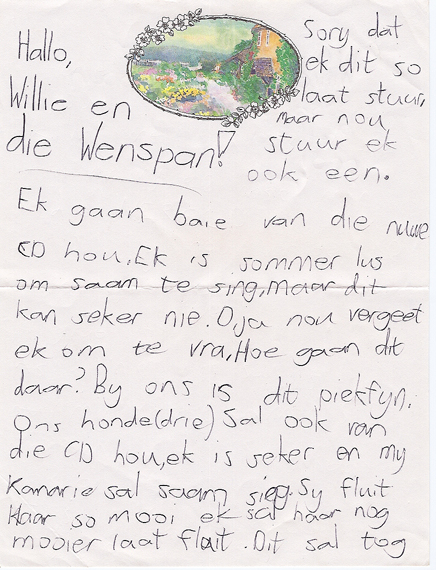 Hallo,
Willie en
die Wenspan!
Sory dat
ek dit so
laat stuur,
maar nou
stuur ek
ook een.
Ek gaan baie van die nuwe
CD hou,Ek is sommer lus
om saam te sing,maar dit
kan seker nie.O,ja nou vergeet
ek om te vra,Hoe gaan dit
daar? By ons is dit piekfyn.
Ons honde(drie) Sal ook van
die CD hou,ek is seker en my
Kanarie sal saam sieg.Sy fluit
Haar so mooi ek sal haar nog
mooier laat fluit .Dit sal tog